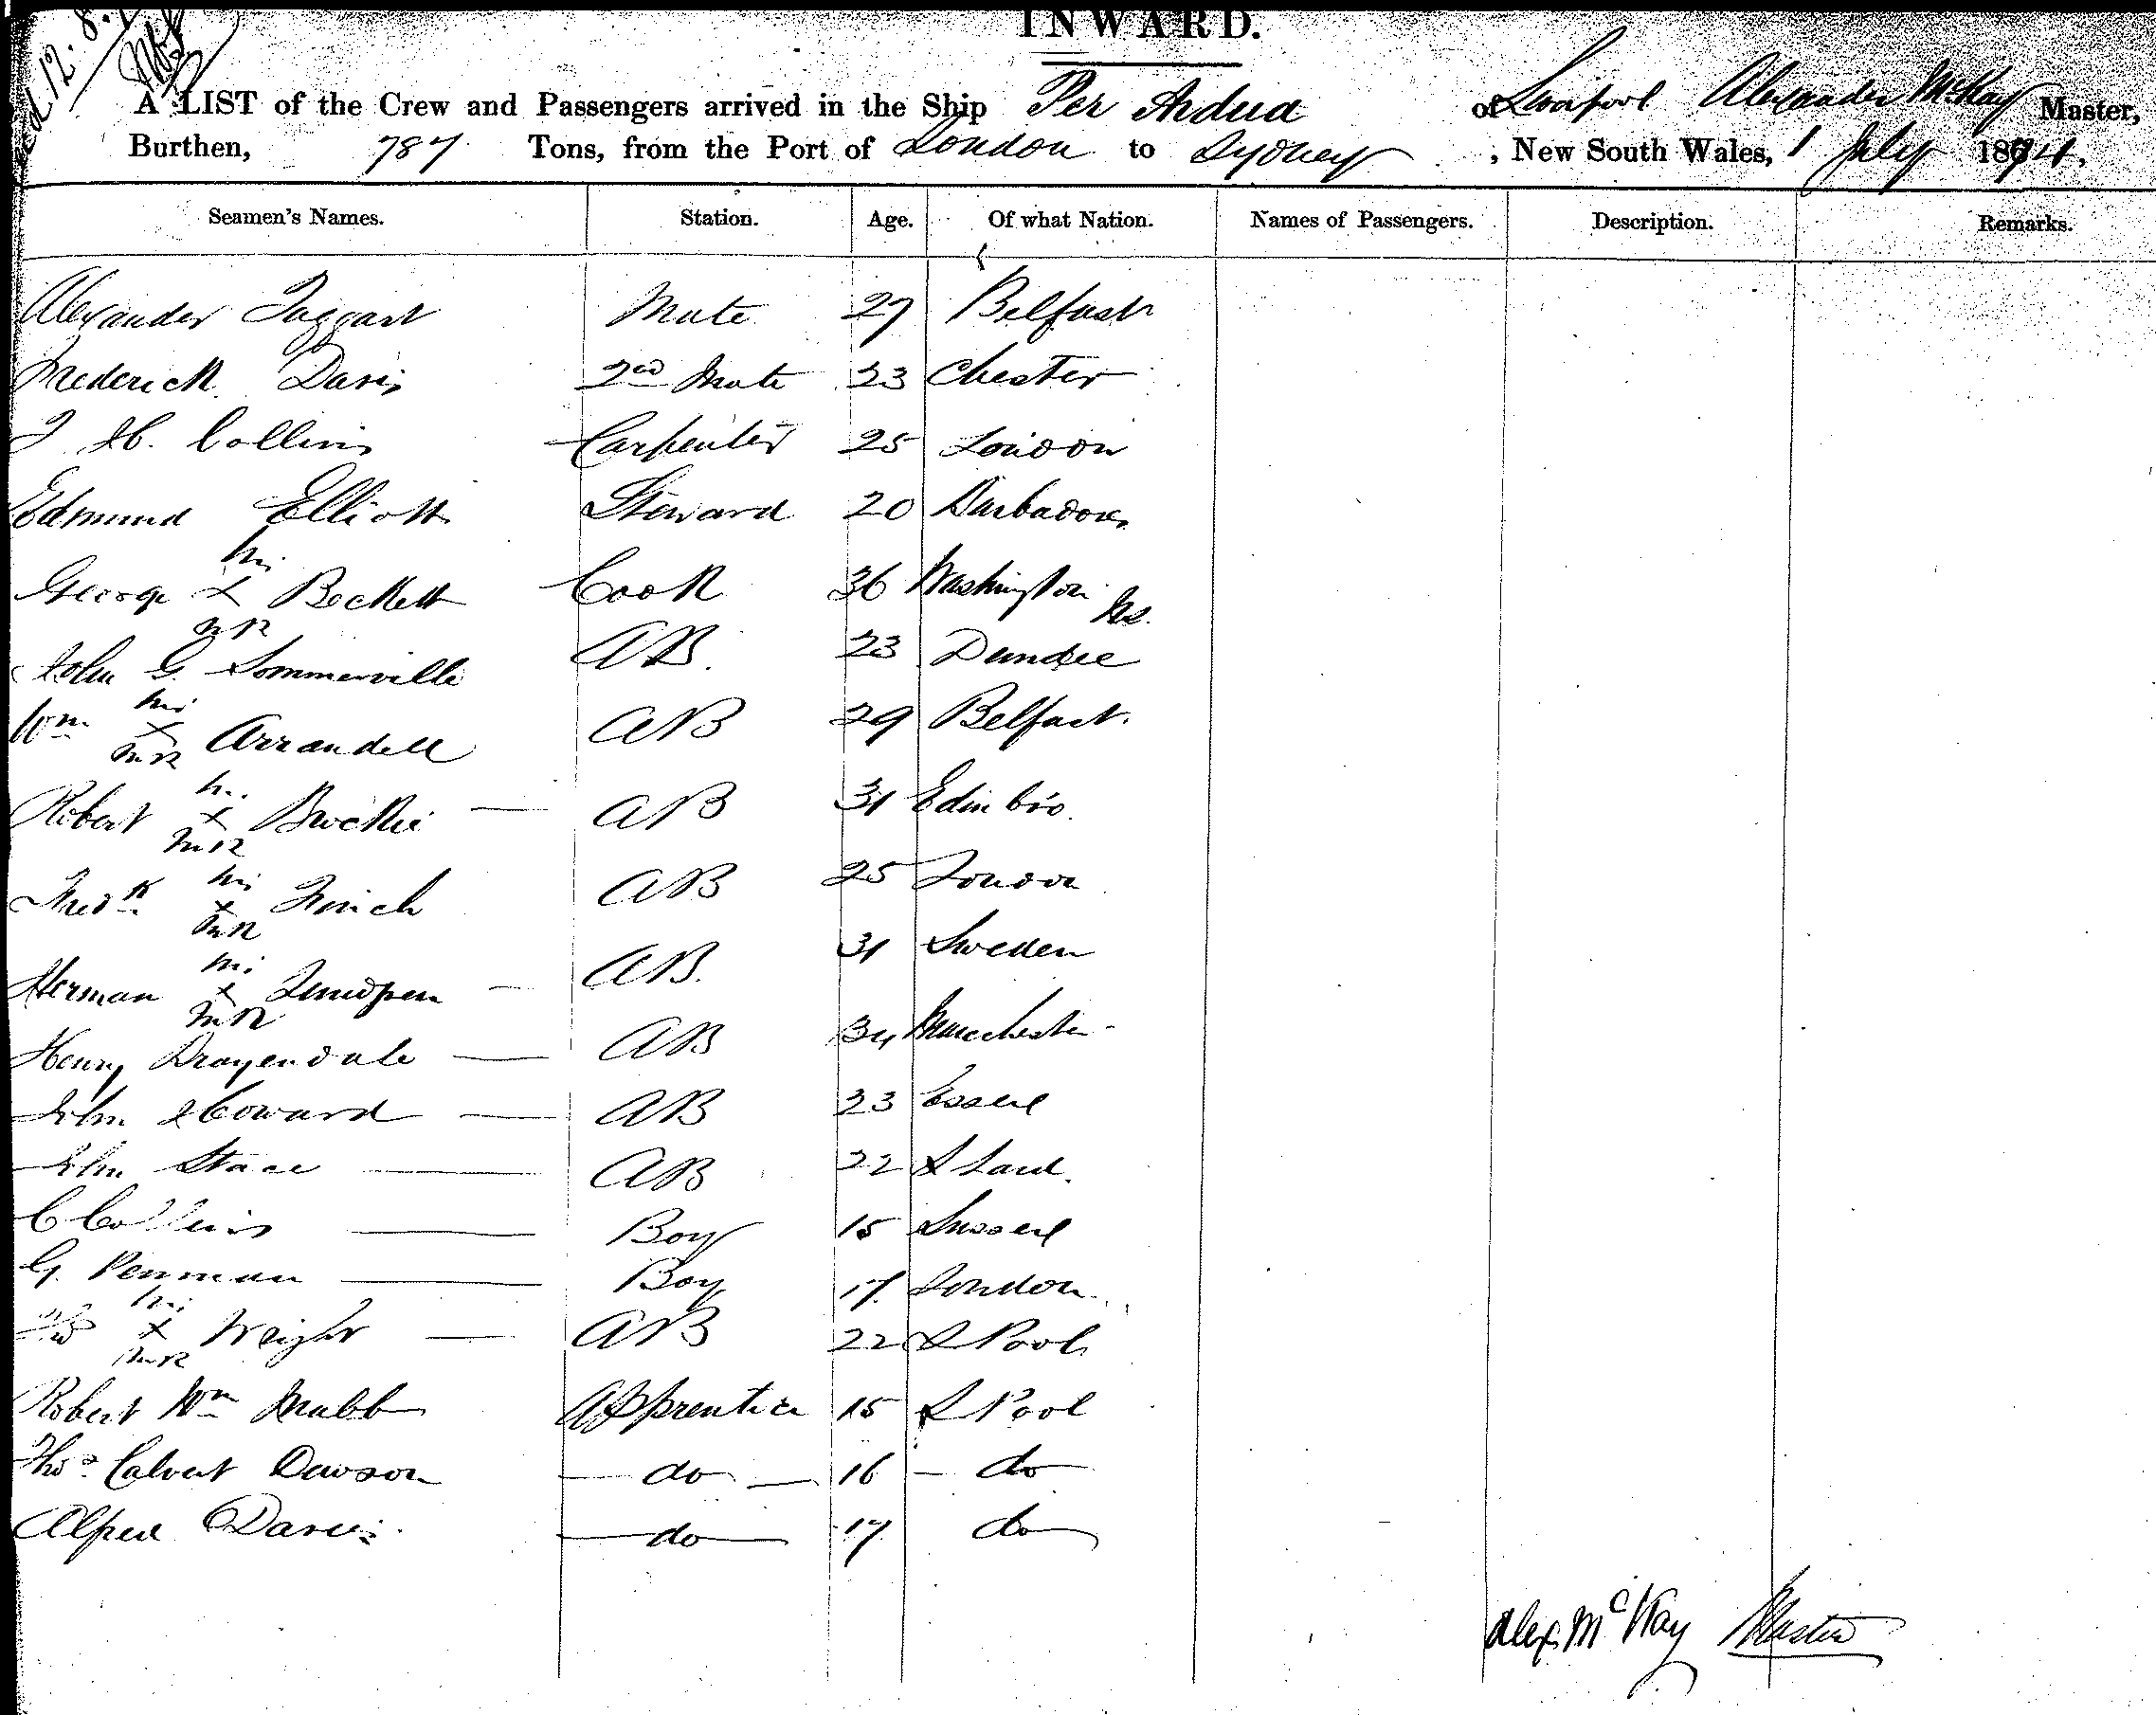 INWARD.
A LIST of the Crew and Passengers arrived in the Ship Per Ardua of Liverpool Alexander McKay Master,
Burthen, 787 Tons, from the Port of London to Sydney, New South Wales, 1 July 1874.
Seamen's Names. Station. Age. Of what Nation. Names of Passengers. Description. Remarks.
Alexander Taggart Mate 27 Belfast
Frederick Davis 2nd Mate 23 Chester
J H. Collins Carpenter 25 London
Edmund Elliott Steward 20 Barbadoes
his
George x Beckett Cook 36 Washington
mk
John G. Sommerville AB. 23 Dundee
his
Wm x Arrandell AB 29 Belfast.
mk
his
Robert x Brockie AB 31 Edinbro.
mk
his
Fredk x Finch AB 25 London
mk
his
Herman x AB. 31 Sweden
mk
Henry Drayendale AB 34 Manchester
John Howard AB 23 Essex
John Stace AB 22
C Collins Boy 15 Sussex
G. Penman Boy 17 London
his
x Wright AB 22 L Pool
mk
Robert Wm Mabb Apprentice 15 L Pool
Thos Calvert Dawson do 16 do
Alfred Davies do 17 do
Alex McKay Master